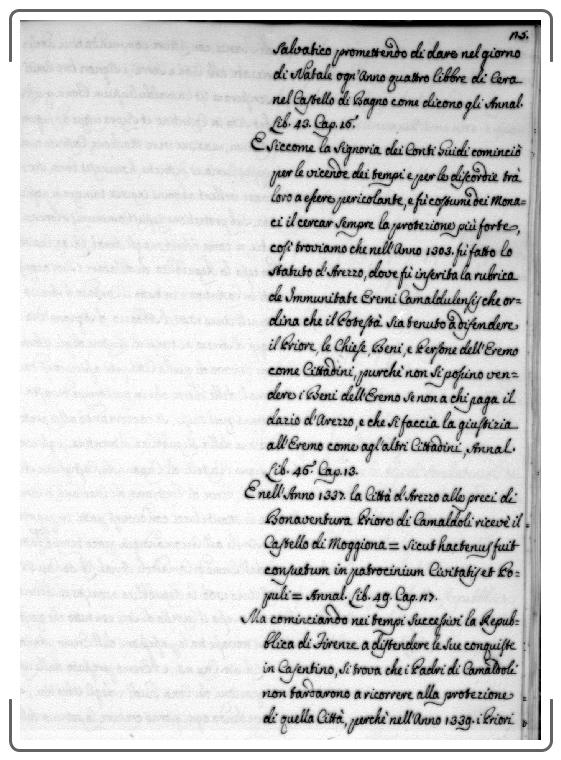 n5.
Salvatico promettendo di dare nel giorno
di Natale ogn'Anno quattro libbre di Cera
nel Castello di Bagno come dicono gli Annal.
Lib. 43. Cap. 16.
E Siccome la Signoria dei Conti Guidi cominciò
per le vicende dei tempi e per le discordie trà
loro a essere pericolante, e fù costume dei Mona=
ci il cercar sempre la protezione più forte,
così troviamo che nell'Anno 1303. fù fatto lo
Statuto d'Arezzo, dove fù inserita la rubrica
de Immunitate Eremi Camaldulensis che or=
dina che il Potestà sia tenuto a difendere
il Priore, le Chiese, Beni, e Persone dell'Eremo
come Cittadini, purchè non si possino ven=
dere i Beni dell'Eremo se non a chi paga il
dazio d'Arezzo, e che si faccia la giustizia
all'Eremo come agl'altri Cittadini, Annal.
Lib. 46. Cap. 13.
E nell'Anno 1337. la Città d'Arezzo alle preci di
Bonaventura Priore di Camaldoli ricevè il
Castello di Moggiona = Sicut hactenus fuit
consuetum in patrocinium Civitatis et Po=
puli = Annal. Lib. 49. Cap. n7.
Ma cominciando nei tempi successivi la Repub=
blica di Firenze a distendere le sue conquiste
in Casentino, si trova che i Padri di Camaldoli
non tardarono a ricorrere alla protezione
di quella Città, perchè nell'Anno 1339. i Priori